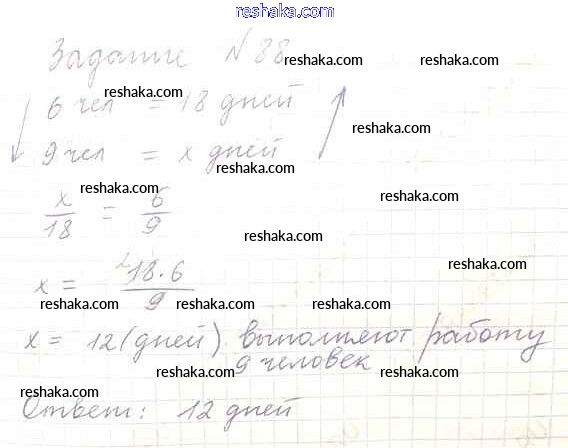 reshaka.com
Задание № 88
reshaka.com reshaka.com
6 чел = 18 дней
reshaka.com
9 чел = x дней
reshaka.com
reshaka.com reshaka.com
x/18 = 6/9
reshaka.com
reshaka.com
x = 18·6/9
reshaka.com reshaka.com reshaka.com
x = 12 (дней) выполняют работу
9 человек
reshaka.com reshaka.com
reshaka.com
Ответ: 12 дней
reshaka.com reshaka.com